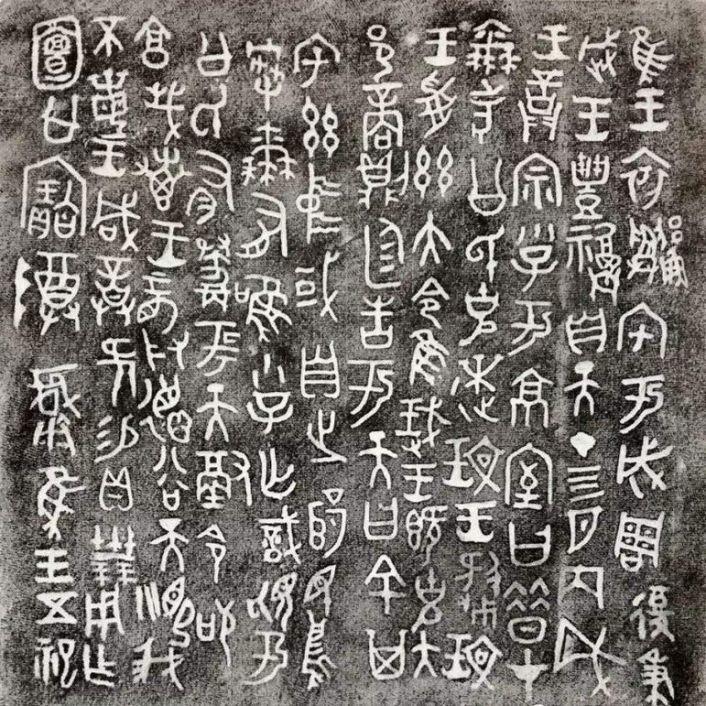 隹王初遷宅于成周復爯
珷王豊福自天才四月丙戌
王誥宗小子于京室曰昔才
爾考公氏克逨玟王肆玟
王受茲大令隹珷王既克大
邑商則廷告于天曰余其
宅茲中或自之乂民烏
虖爾有唯小子亡識視于
公氏有爵于天徹令敬
享哉叀王恭德谷天順我
不每王咸誥𣄰易貝卅朋用乍
庾公寶尊彝隹王五祀